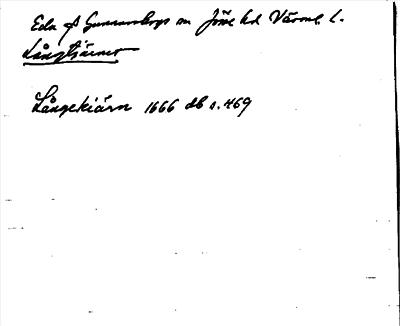 Eda sn Gunnarskogs m Jösse hd Värml. l.
Långtjärnet
Långekiärn 1666 db s. 469